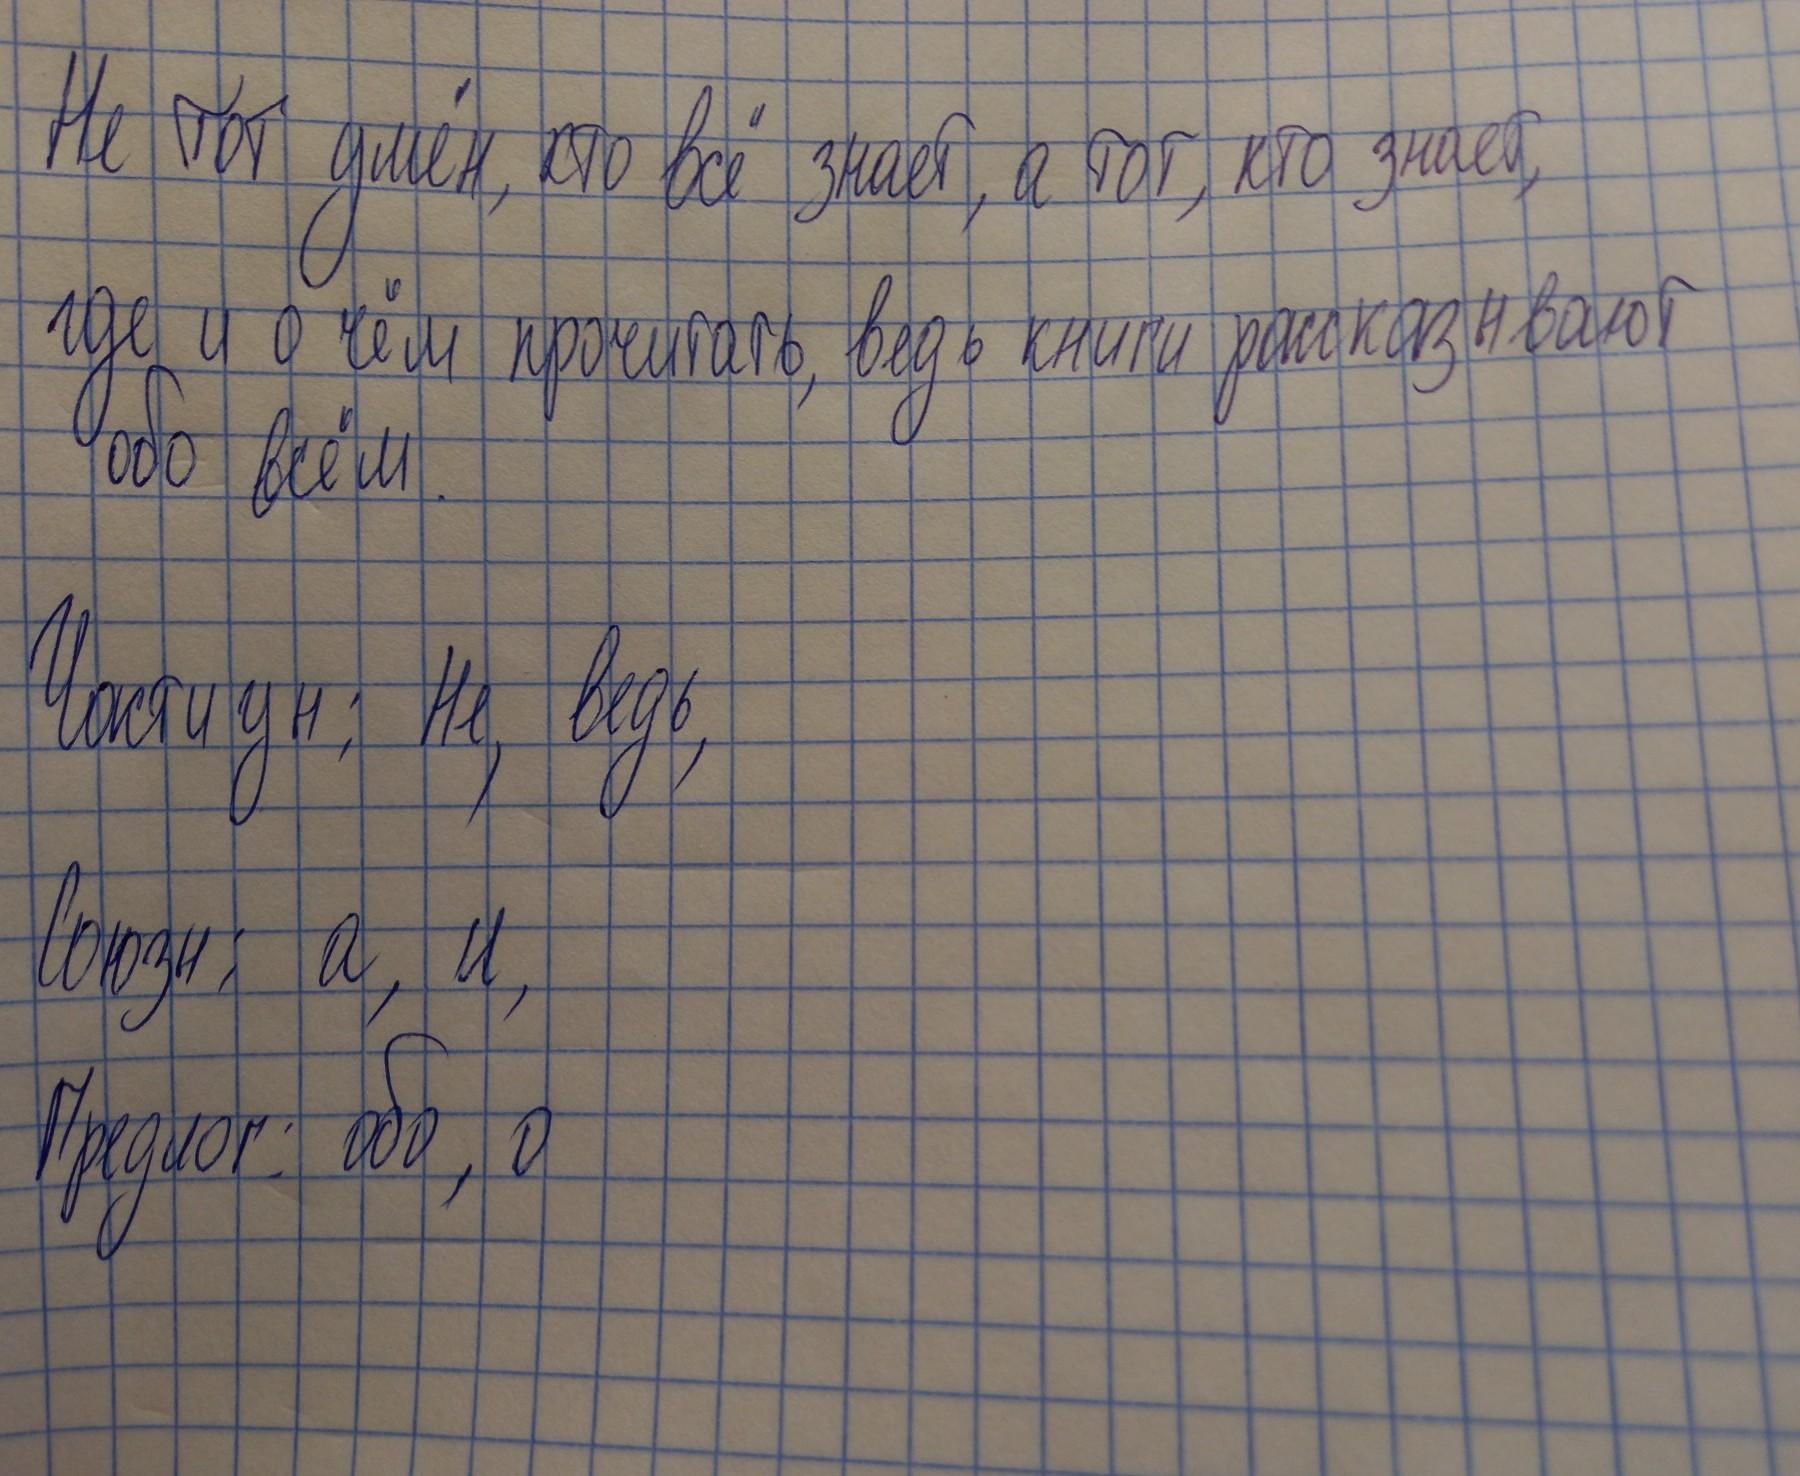 Не тот умён, кто всё знает, а тот, кто знает,
где и о чём прочитать, ведь книги рассказывают
обо всём.
Частицы: Не, ведь,
Союзы: а, и,
Предлог: обо, о